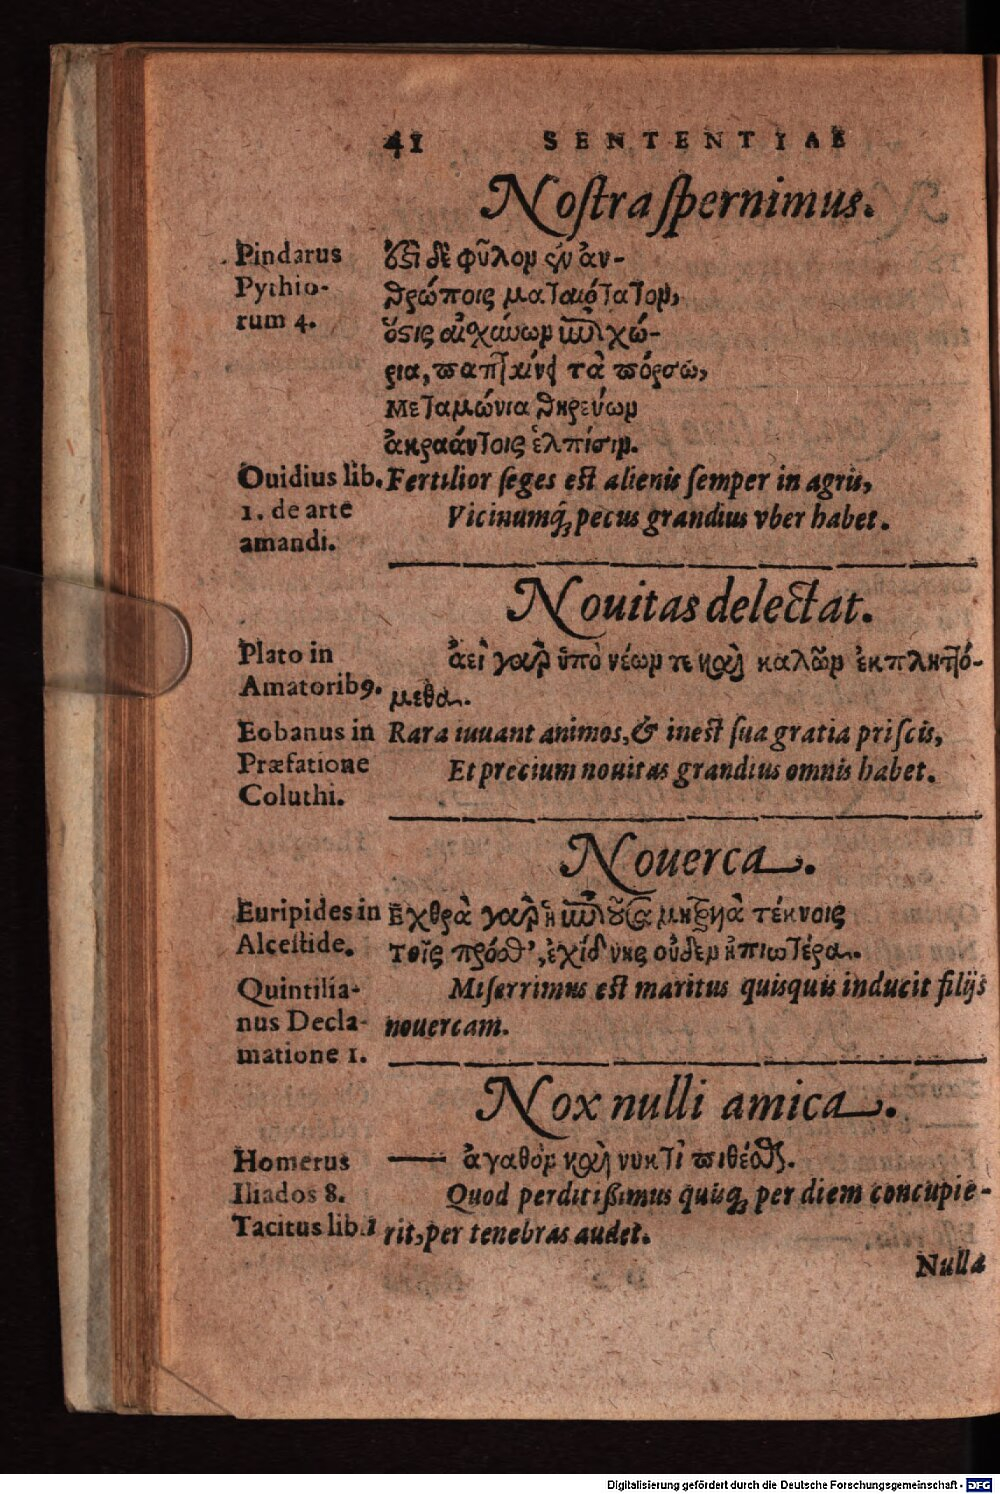 41 SENTENTIAE
Nostra spernimus.
Pindarus
Pythio-
rum 4.
ἔστι δὲ φῦλον ἐν ἀν-
θρώποις ματαιότατον,
ὅστις αἰσχύνων ἐπιχώ-
ρια, παπταίνει τὰ πόρσω,
Μεταμώνια θηρεύων
ἀκραάντοις ἐλπίσιν.
Ouidius lib.
1. de arte
amandi.
Fertilior seges est alienis semper in agris,
Vicinumq́; pecus grandius vber habet.
Nouitas delectat.
Plato in
Amatorib9.
ἀεὶ γὰρ ὑπὸ νέων τε καὶ καλῶν ἐκπληττό-
μεθα.
Eobanus in
Præfatione
Coluthi.
Rara iuuant animos, & inest sua gratia priscis,
Et precium nouitas grandius omnis habet.
Nouerca.
Euripides in
Alcestide.
Εχθρὰ γὰρ ἡ ἐπιοῦσα μητρυιὰ τέκνοις
τοῖς πρόσθ', ἐχίδνης οὐδὲν ἠπιωτέρα.
Quintilia-
nus Decla-
matione 1.
Miserrimus est maritus quisquis inducit filijs
nouercam.
Nox nulli amica.
Homerus
Iliados 8.
— ἀγαθὸν καὶ νυκτὶ πιθέσθαι.
Tacitus lib.1
Quod perditißimus quisq; per diem concupie-
rit, per tenebras audet.
Nulla
Digitalisierung gefördert durch die Deutsche Forschungsgemeinschaft - DFG